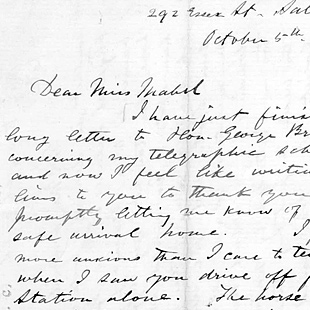 292 Essex St. Sal
October 5th
Dear Miss Mabel
I have just finis
long letter to Hon. George Br
concerning my telegraphic sch
and now I feel like writin
lines to you to thank you
promptly letting me know of
safe arrival home. I
more anxious than I care to te
when I saw you drive off f
station alone. The horse